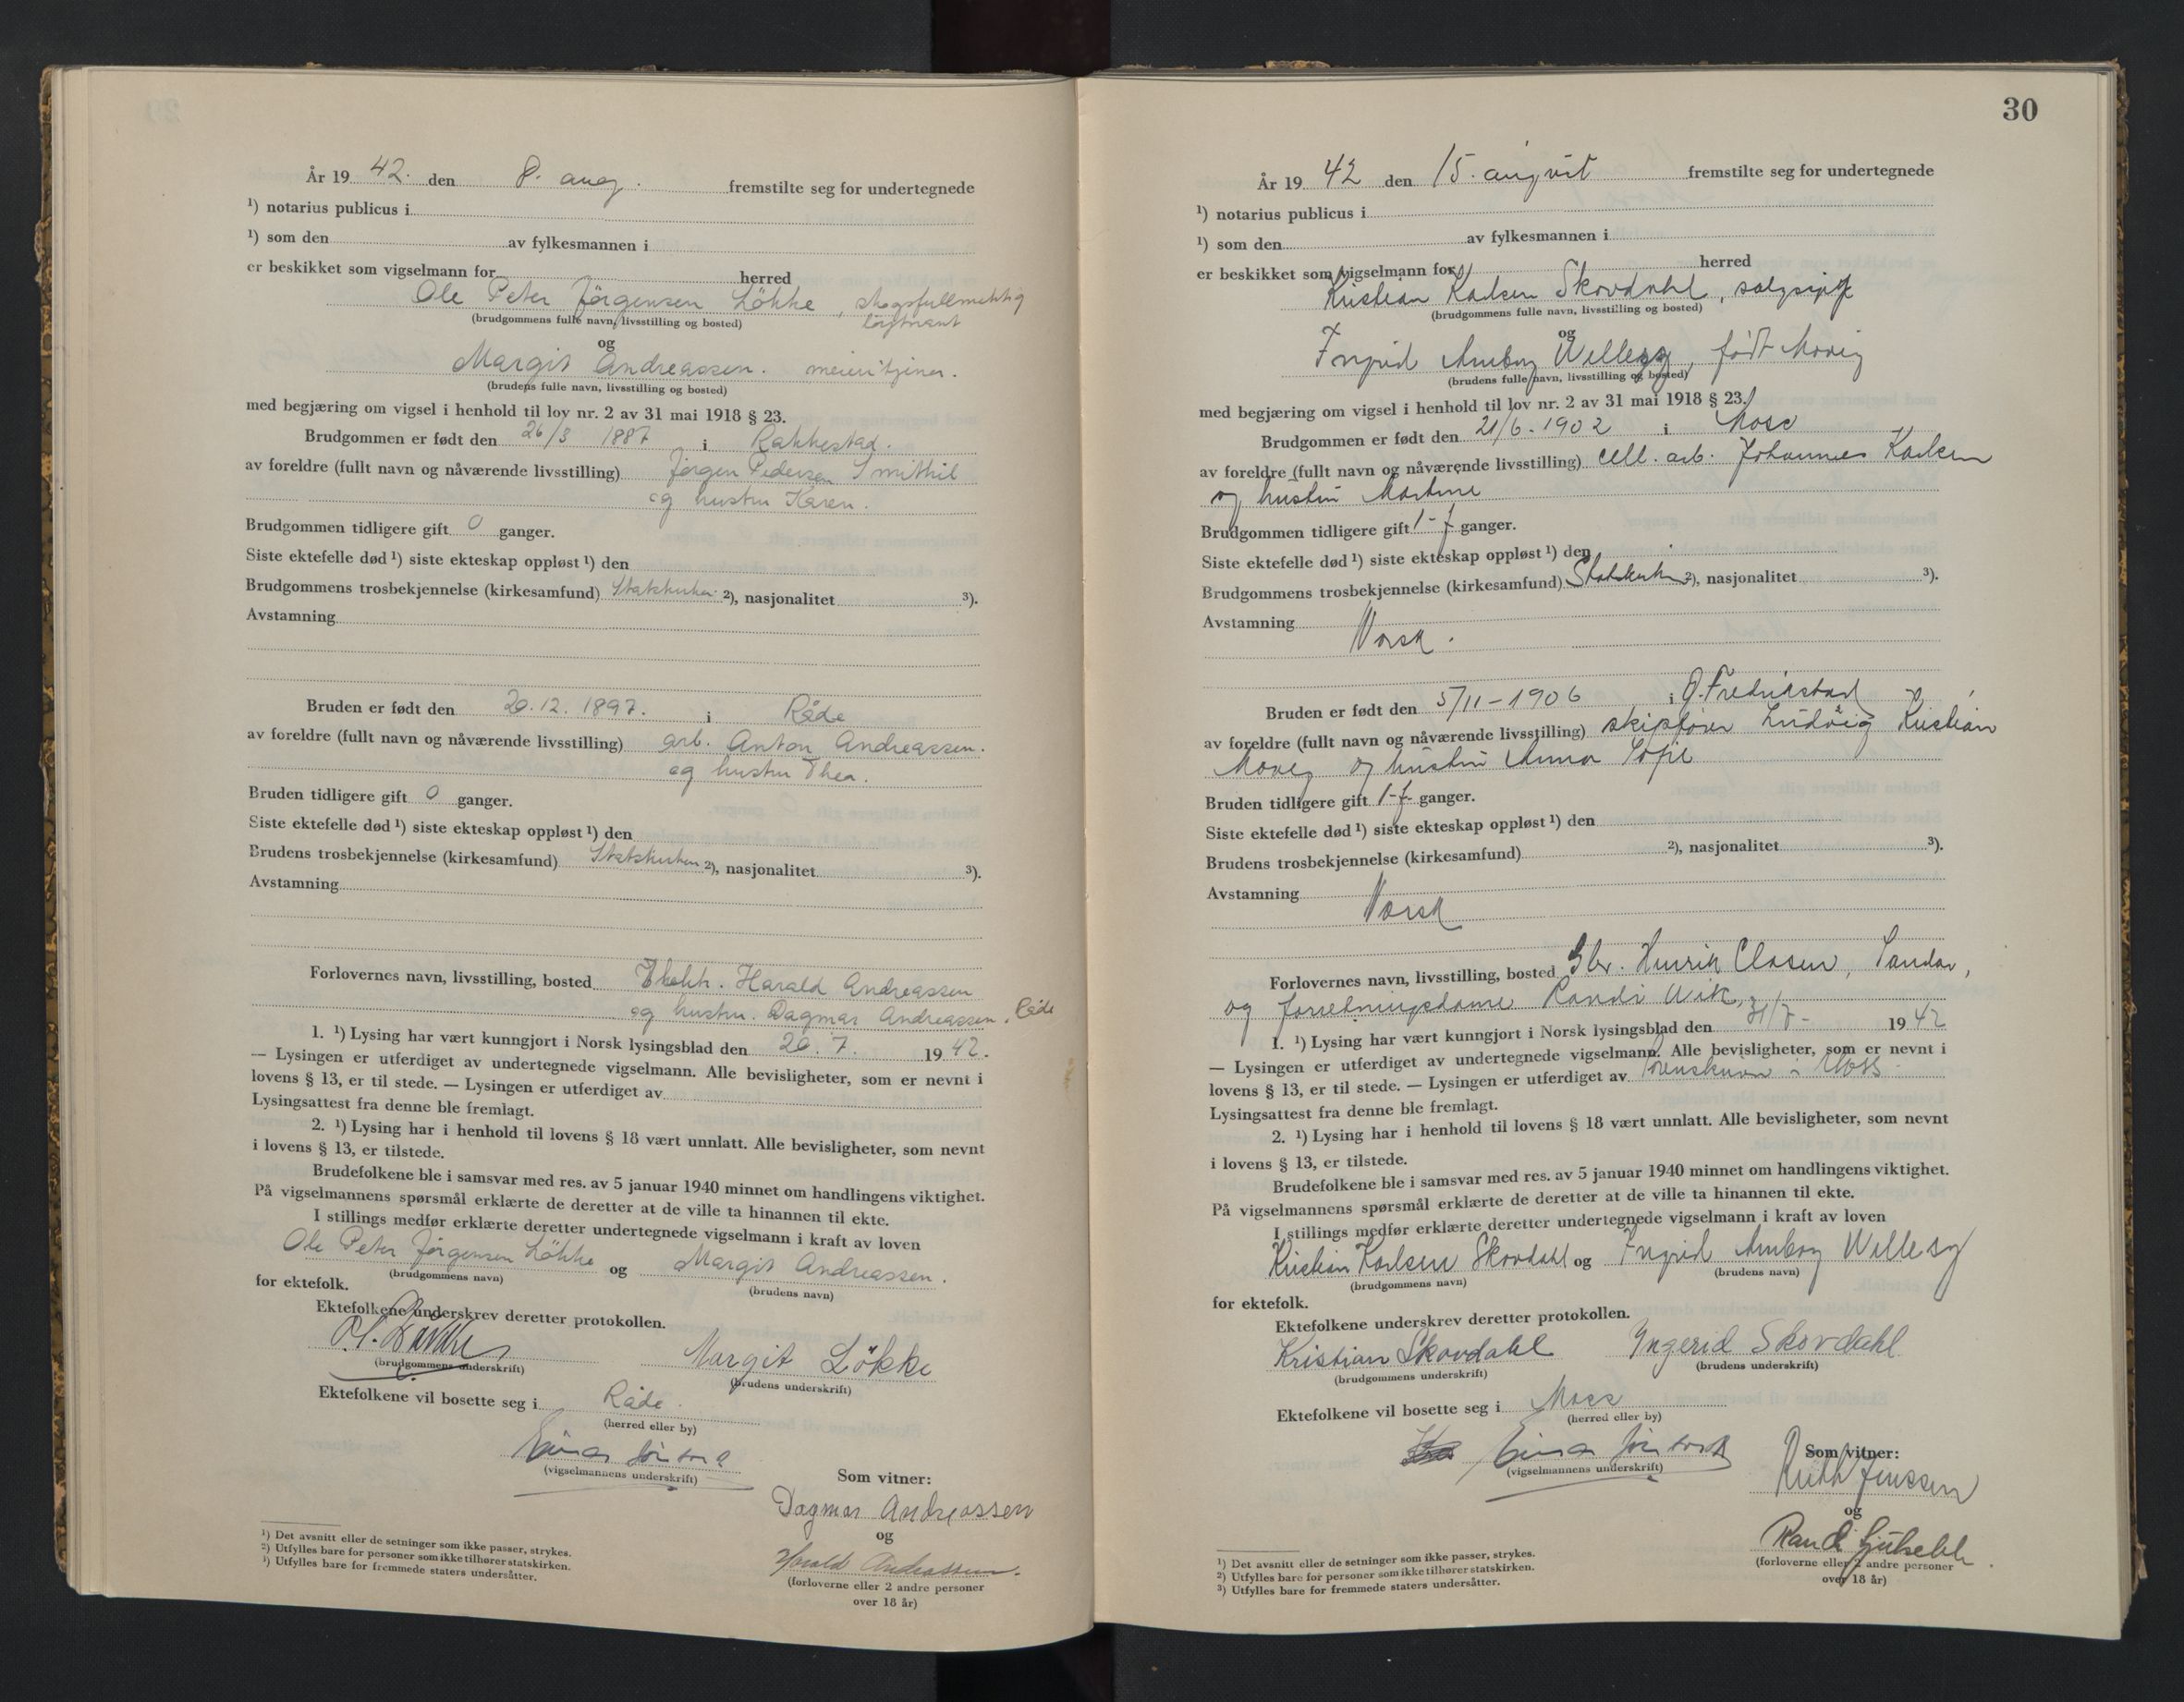 År 19 42. den 8. aug. fremstilte seg for undertegnede
¹) notarius publicus i
¹) som den av fylkesmannen i
er beskikket som vigselmann for herred
Ole Peter Jörgensen Lökke, skogsfullmektig
(brudgommens fulle navn, livsstilling og bosted)
og
Margit Andreassen.
(brudens fulle navn, livsstilling og bosted)
med begjæring om vigsel i henhold til lov nr. 2 av 31 mai 1918 § 23.
Brudgommen er født den 26/3 1887 i Rakkestad.
av foreldre (fullt navn og nåværende livsstilling) Jörgen Pedersen
og hustru Karen.
Brudgommen tidligere gift 0 ganger.
Siste ektefelle død ¹) siste ekteskap oppløst ¹) den
Brudgommens trosbekjennelse (kirkesamfund) Statskirken ²), nasjonalitet ³).
Avstamning
Bruden er født den 20.12. 1897. i Råde
av foreldre (fullt navn og nåværende livsstilling) arb. Anton Andreassen.
og hustru Thea.
Bruden tidligere gift 0 ganger.
Siste ektefelle død ¹) siste ekteskap oppløst ¹) den
Brudens trosbekjennelse (kirkesamfund) Statskirken ²), nasjonalitet ³).
Avstamning
Forlovernes navn, livsstilling, bosted Harald Andreassen
og hustru. Dagmar Andreassen. Råde
1. ¹) Lysing har vært kunngjort i Norsk lysingsblad den 20. 7. 19 42.
— Lysingen er utferdiget av undertegnede vigselmann. Alle bevisligheter, som er nevnt i
lovens § 13, er til stede. — Lysingen er utferdiget av
Lysingsattest fra denne ble fremlagt.
2. ¹) Lysing har i henhold til lovens § 18 vært unnlatt. Alle bevisligheter, som nevnt
i lovens § 13, er tilstede.
Brudefolkene ble i samsvar med res. av 5 januar 1940 minnet om handlingens viktighet.
På vigselmannens spørsmål erklærte de deretter at de ville ta hinannen til ekte.
I stillings medfør erklærte deretter undertegnede vigselmann i kraft av loven
Ole Peter Jörgensen Lökke og Margit Andreassen.
(brudgommens navn) (brudens navn)
for ektefolk.
Ektefolkene underskrev deretter protokollen.
Margit Lökke
(brudgommens underskrift) (brudens underskrift)
Ektefolkene vil bosette seg i Råde.
(herred eller by)
(vigselmannens underskrift)
Som vitner:
Dagmar Andreassen
og
Harald Andreassen.
(forloverne eller 2 andre personer
over 18 år)
¹) Det avsnitt eller de setninger som ikke passer, strykes.
²) Utfylles bare for personer som ikke tilhører statskirken.
³) Utfylles bare for fremmede staters undersåtter.
30
År 19 42 den 15. august fremstilte seg for undertegnede
¹) notarius publicus i
¹) som den av fylkesmannen i
er beskikket som vigselmann for herred
Kristian Karlsen Skovdahl, salgssjef
(brudgommens fulle navn, livsstilling og bosted)
og
Ingrid født Moveg
(brudens fulle navn, livsstilling og bosted)
med begjæring om vigsel i henhold til lov nr. 2 av 31 mai 1918 § 23.
Brudgommen er født den 21/6-1902 i Moss
av foreldre (fullt navn og nåværende livsstilling) cell. arb. Johannes Karlsen
og hustru Martine
Brudgommen tidligere gift 1 ganger.
Siste ektefelle død ¹) siste ekteskap oppløst ¹) den
Brudgommens trosbekjennelse (kirkesamfund) Statskirken ²), nasjonalitet ³).
Avstamning
Norsk.
Bruden er født den 5/11-1906 i Ø. Fredrikstad
av foreldre (fullt navn og nåværende livsstilling) skipsfører Ludvig Kristian
Moveg og hustru Anna Sofie
Bruden tidligere gift 1 ganger.
Siste ektefelle død ¹) siste ekteskap oppløst ¹) den
Brudens trosbekjennelse (kirkesamfund) ²), nasjonalitet ³).
Avstamning
Norsk
Forlovernes navn, livsstilling, bosted Henrik Clasen, Sandar,
og forretningsdame Randi Wik,
1. ¹) Lysing har vært kunngjort i Norsk lysingsblad den 31/7- 19 42
— Lysingen er utferdiget av undertegnede vigselmann. Alle bevisligheter, som er nevnt i
lovens § 13, er til stede. — Lysingen er utferdiget av Moss
Lysingsattest fra denne ble fremlagt.
2. ¹) Lysing har i henhold til lovens § 18 vært unnlatt. Alle bevisligheter, som nevnt
i lovens § 13, er tilstede.
Brudefolkene ble i samsvar med res. av 5 januar 1940 minnet om handlingens viktighet.
På vigselmannens spørsmål erklærte de deretter at de ville ta hinannen til ekte.
I stillings medfør erklærte deretter undertegnede vigselmann i kraft av loven
Kristian Karlsen Skovdahl og Ingrid
(brudgommens navn) (brudens navn)
for ektefolk.
Ektefolkene underskrev deretter protokollen.
Kristian Skovdahl Ingerid Skovdahl
(brudgommens underskrift) (brudens underskrift)
Ektefolkene vil bosette seg i Moss
(herred eller by)
(vigselmannens underskrift)
Som vitner:
Ruth Jenssen
og
Randi
(forloverne eller 2 andre personer
over 18 år)
¹) Det avsnitt eller de setninger som ikke passer, strykes.
²) Utfylles bare for personer som ikke tilhører statskirken.
³) Utfylles bare for fremmede staters undersåtter.